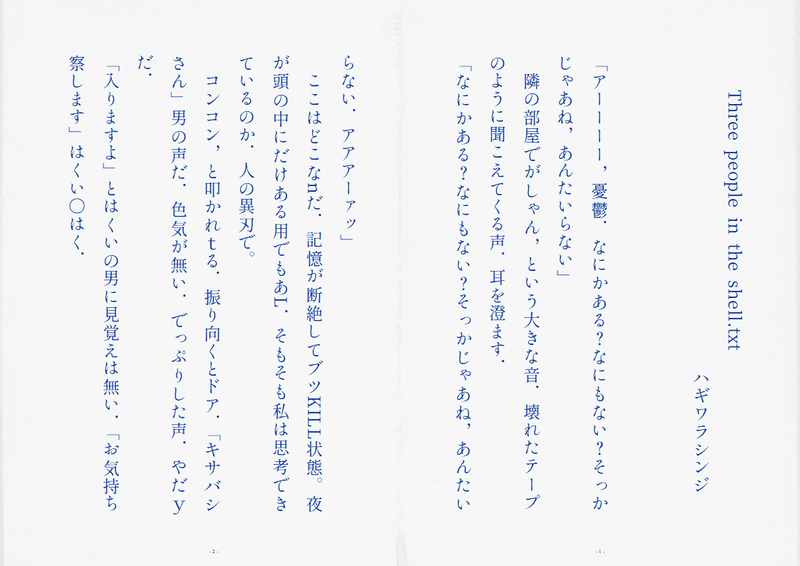 Three people in the shell.txt
ハギワラシンジ
「アーーーー，憂鬱．なにかある？なにもない？そっか
じゃあね，あんたいらない」
隣の部屋でがしゃん，という大きな音．壊れたテープ
のように聞こえてくる声．耳を澄ます．
「なにかある？なにもない？そっかじゃあね，あんたい
-1-
らない．アアアーァッ」
ここはどこなnだ．記憶が断絶してブツKILL状態。夜
が頭の中にだけある用でもあL．そもそも私は思考でき
ているのか．人の異刃で。
コンコン，と叩かれtる．振り向くとドア．「キサバシ
さん」男の声だ．色気が無い．でっぷりした声．やだy
だ．
「入りますよ」とはくいの男に見覚えは無い．「お気持ち
察します」はくい〇はく．
-2-